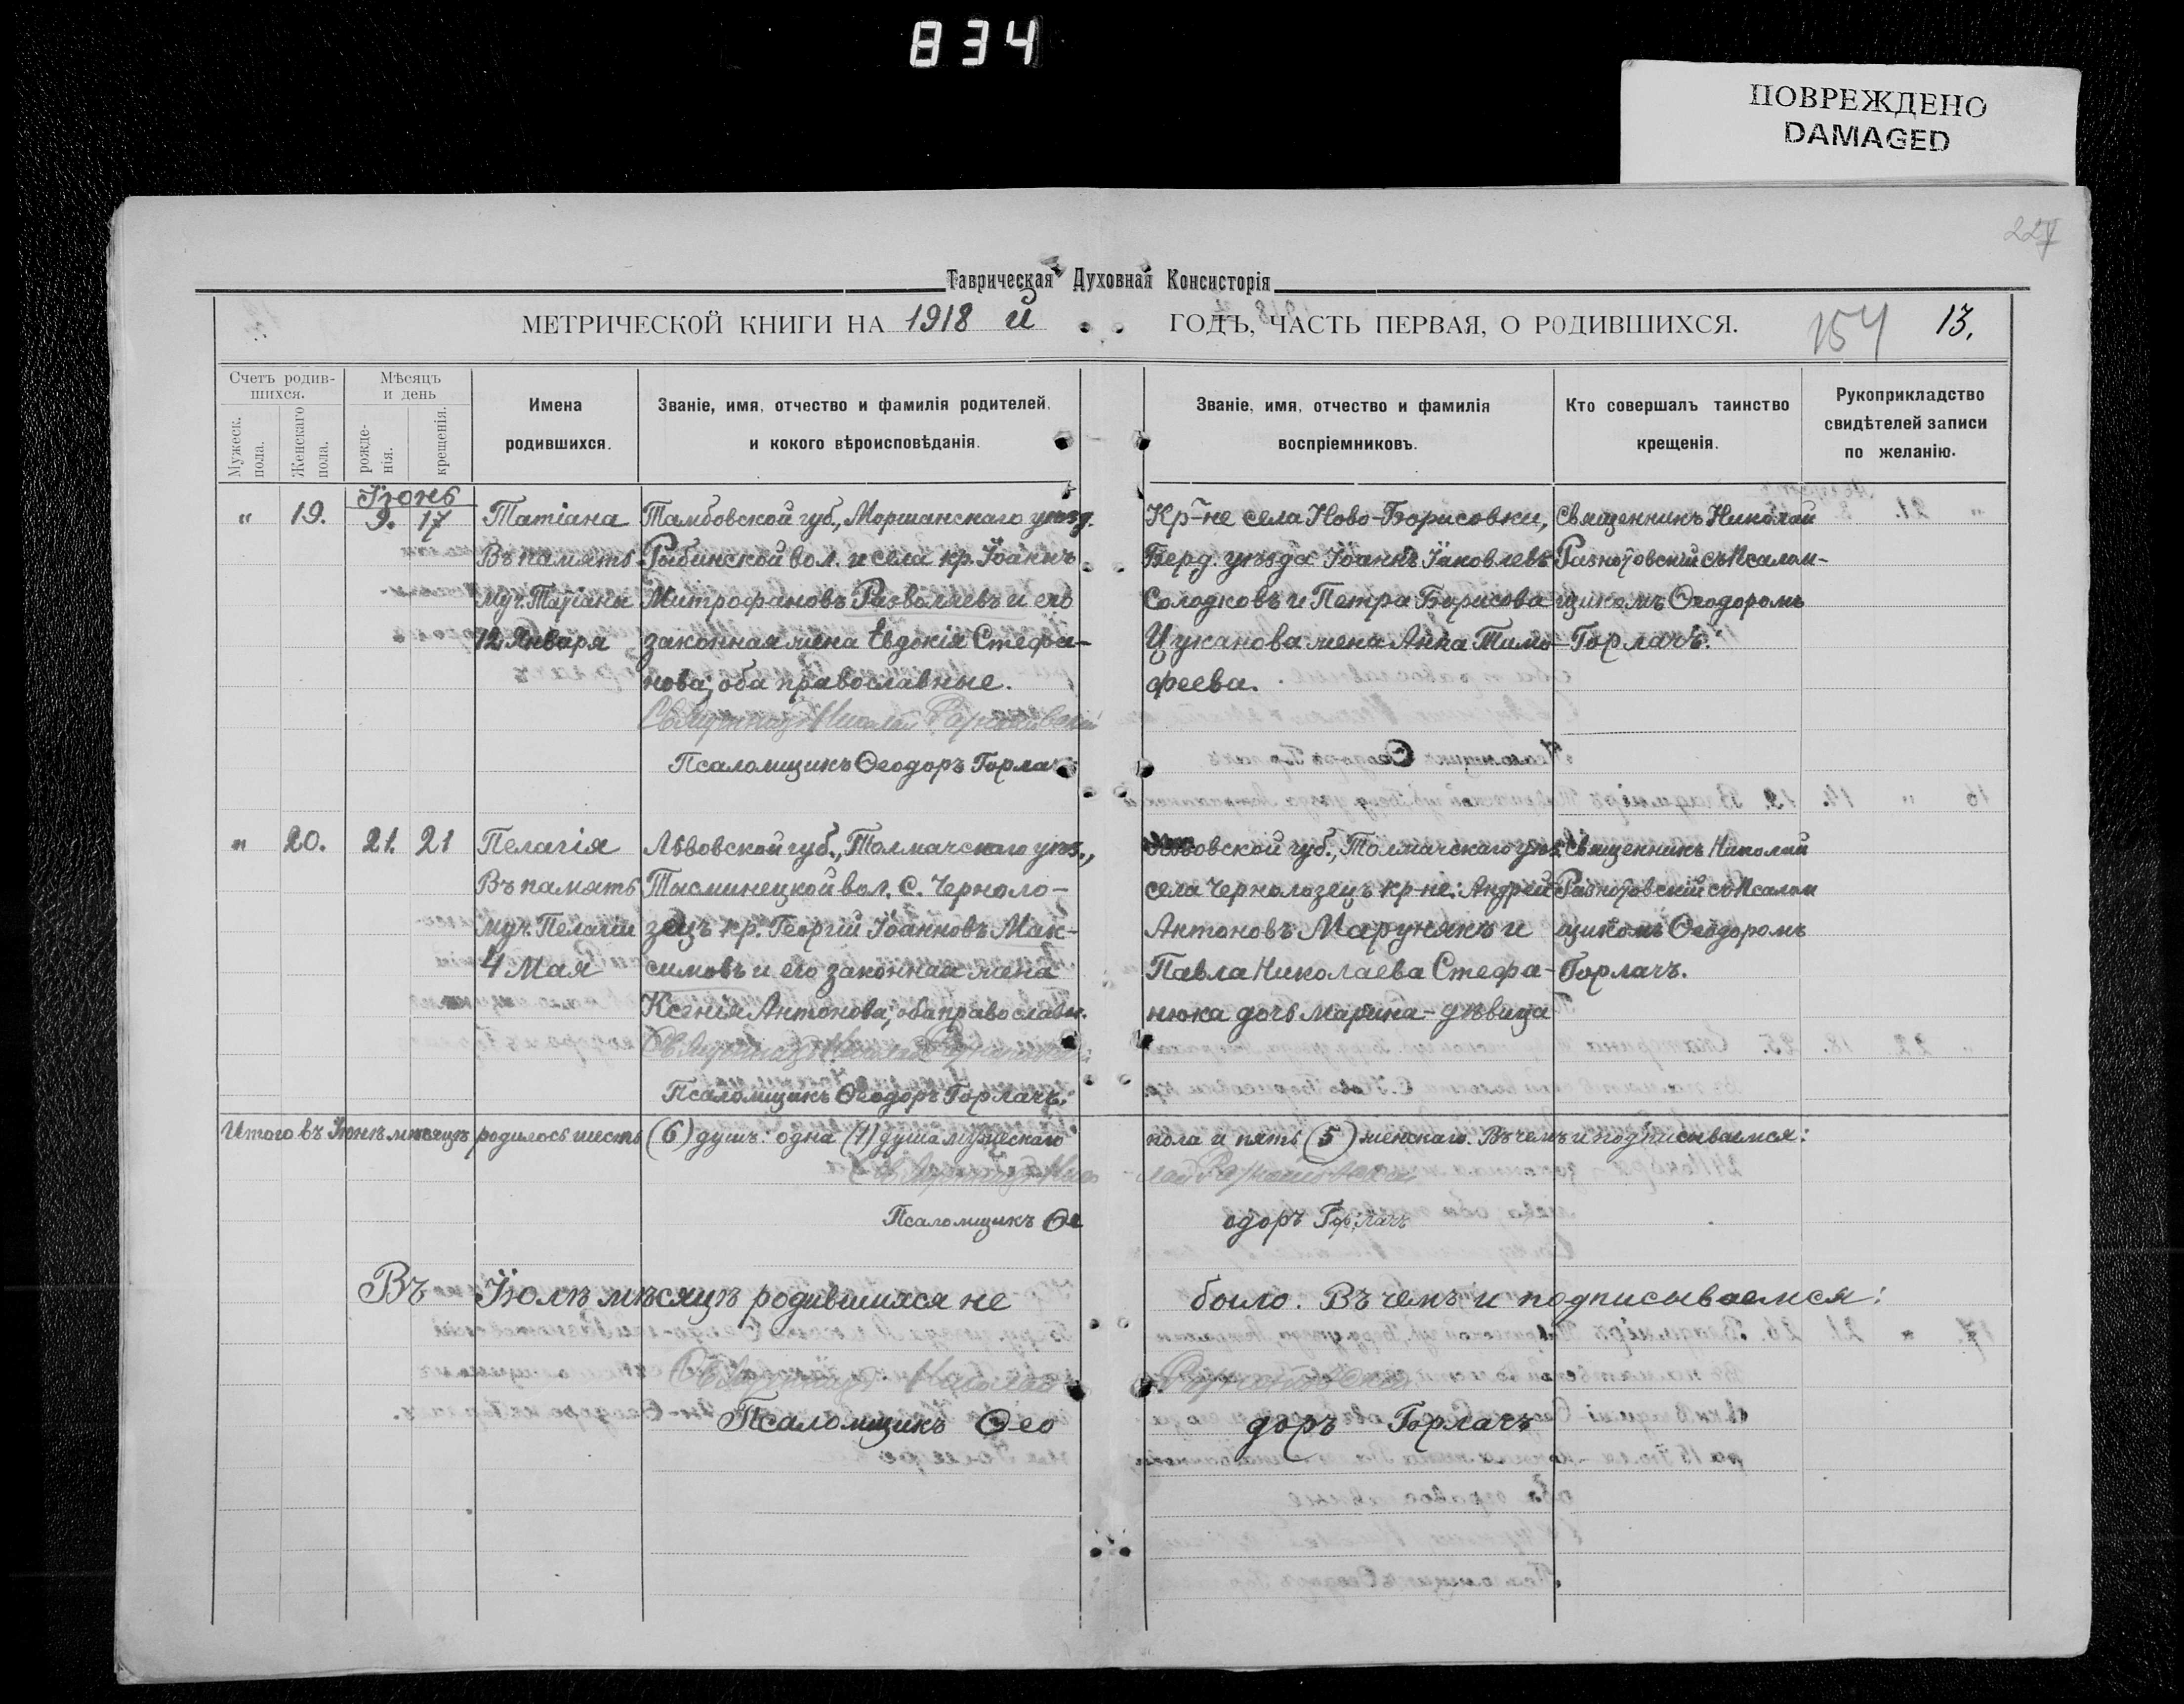 834
ПОВРЕЖДЕНО
DAMAGED
Таврическая Духовная Консисторія
МЕТРИЧЕСКОЙ КНИГИ НА 1918 й ГОДЪ, ЧАСТЬ ПЕРВАЯ, О РОДИВШИХСЯ.
154
13.
Счетъ родив-
шихся.
Мужеск.
пола.
Женскаго
пола.
Мѣсяцъ
и день
рожде-
нія.
крещенія.
Имена
родившихся.
Званіе, имя, отчество и фамилія родителей,
и кокого вѣроисповѣданія.
Званіе, имя, отчество и фамилія
воспріемниковъ.
Кто совершалъ таинство
крещенія.
Рукоприкладство
свидѣтелей записи
по желанію.
Іюнь
" 19. 9. 17
Татіана
Въ память
муч. Татіаны
12 Января
Тамбовской губ., Моршанскаго уѣзд.
Рыбинской вол. и села кр. Іоаннъ
Митрофановъ Разваляевъ и его
законная жена Евдокія Стефа-
нова; оба православные.
Священникъ Николай
Псаломщикъ Ѳеодоръ Горлачъ
Кр-не села Ново-Борисовки,
Берд. уѣзда Іоаннъ Іаковлевъ
Солодковъ и Петра Борисова
Цуканова жена Анна Тимо-
феева.
Священникъ Николай
Разнотовскій съ псалом-
щикомъ Ѳеодоромъ
Горлачъ.
" 20. 21. 21
Пелагія
Въ память
муч. Пелагіи
4 Мая
Львовской губ., Толмачскаго уѣз.,
Тысминецкой вол. с. Черноло-
зецъ кр. Георгій Іоанновъ Мак-
симовъ и его законная жена
Ксенія Антонова; оба православн.
Псаломщикъ Ѳеодоръ Горлачъ.
Львовской губ., Толмачскаго уѣз.
села Чернолозецъ кр-не: Андрей
Антоновъ Марунякъ и
Павла Николаева Стефа-
нюка дочь Марина - дѣвица
Священникъ Николай
Разнотовскій съ псалом
щикомъ Ѳеодоромъ
Горлачъ.
Итого въ Іюнѣ мѣсяцѣ родилось шесть (6) душъ: одна (1) душа мужескаго пола и пять (5) женскаго. Въ чемъ и подписываемся:
Псаломщикъ Ѳеодоръ Горлачъ
Въ Іюлѣ мѣсяцѣ родившихся не было. Въ чемъ и подписываемся:
Священникъ Николай
Псаломщикъ Ѳеодоръ Горлачъ